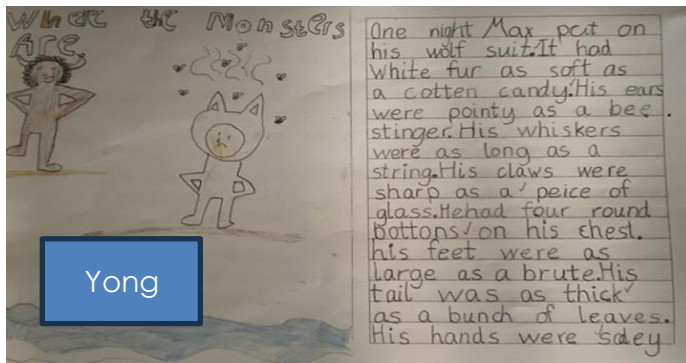 Whae the Monsters
Are
Yong
One night Max put on
his wolf suit.It had
white fur as soft as
a cotten candy.His ears
were pointy as a bee
stinger.His whiskers
were as long as a
string.His claws were
sharp as a peice of
glass.Hehad four round
bottons on his chest.
his feet were as
large as a brute.His
tail was as thick
as a bunch of leaves.
His hands were